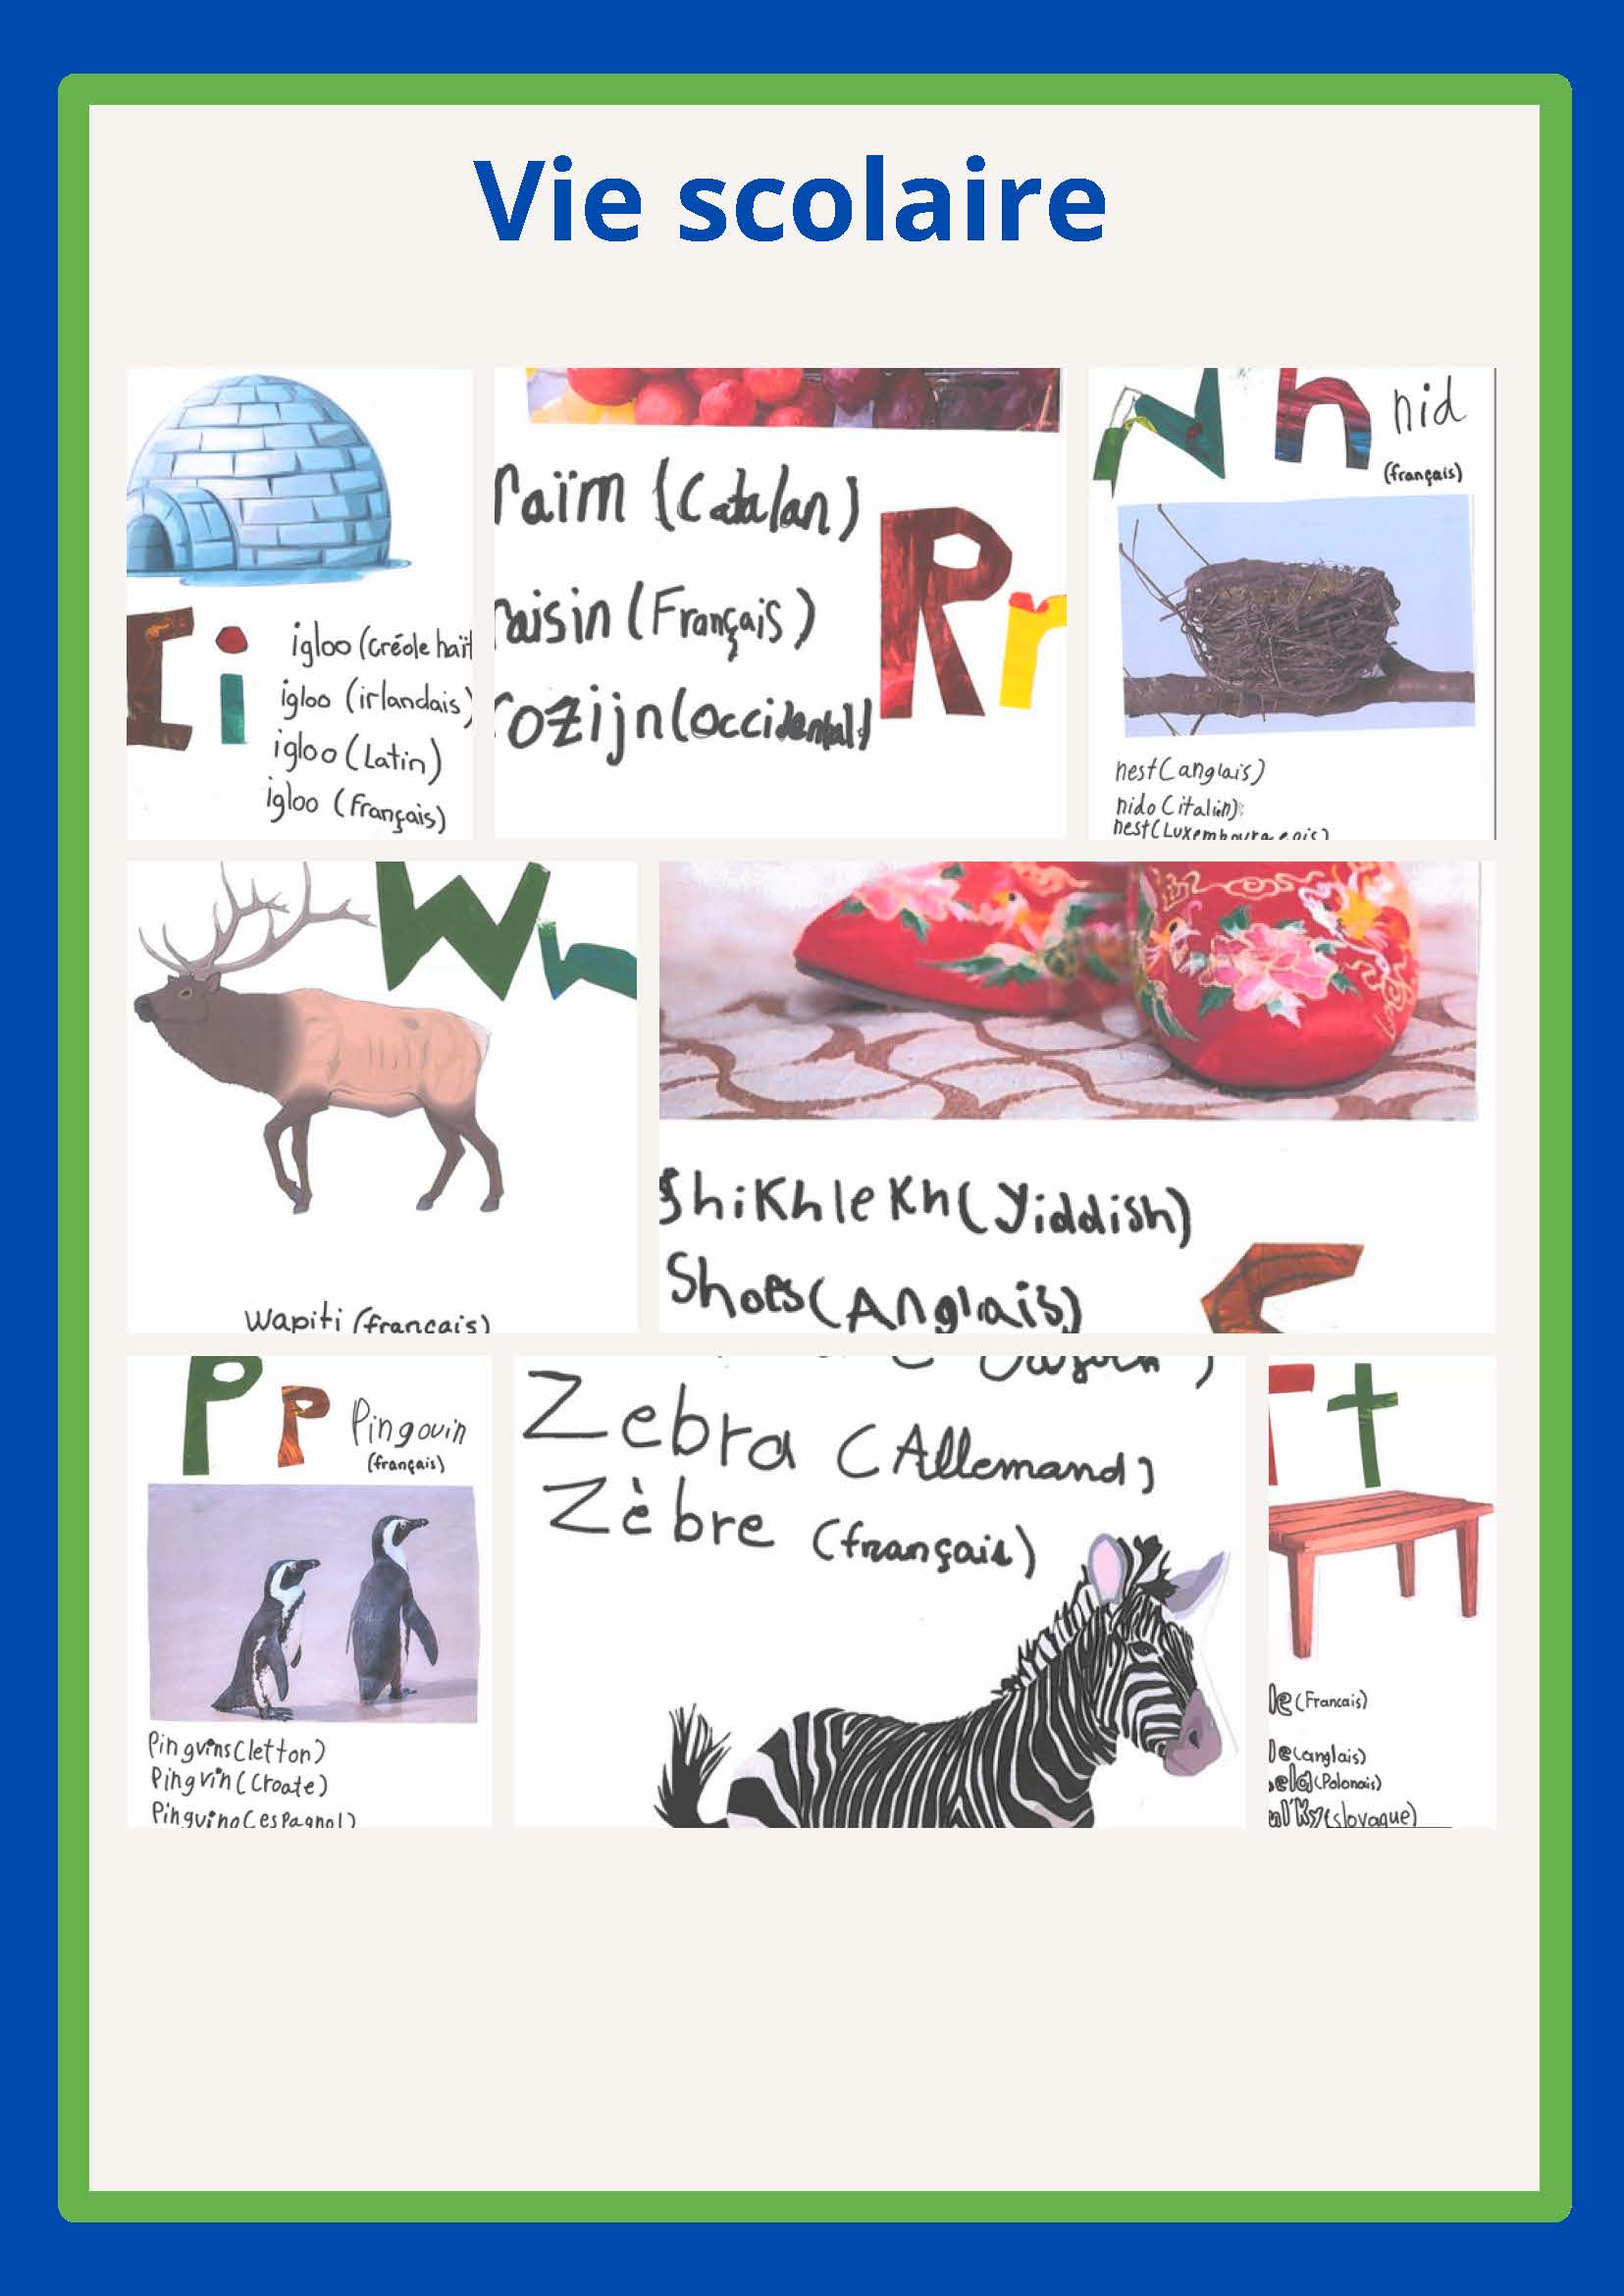 Vie scolaire
I i
igloo (Créole haït
igloo (irlandais)
igloo (Latin)
igloo (français)
raïm (Catalan)
raisin (Français)
rozijn (occidental)
R r
N n nid
(français)
nest (anglais)
nido (italien)
nest (Luxembourgeois)
W w
Wapiti (français)
Shikhlekh (Yiddish)
Shoes (Anglais)
P p Pingouin
(français)
Pingvins (letton)
Pingvin (Croate)
Pinguino (espagnol)
Zebra (Allemand)
Zèbre (français)
T t
le (Francais)
le (anglais)
(Polonais)
(slovaque)